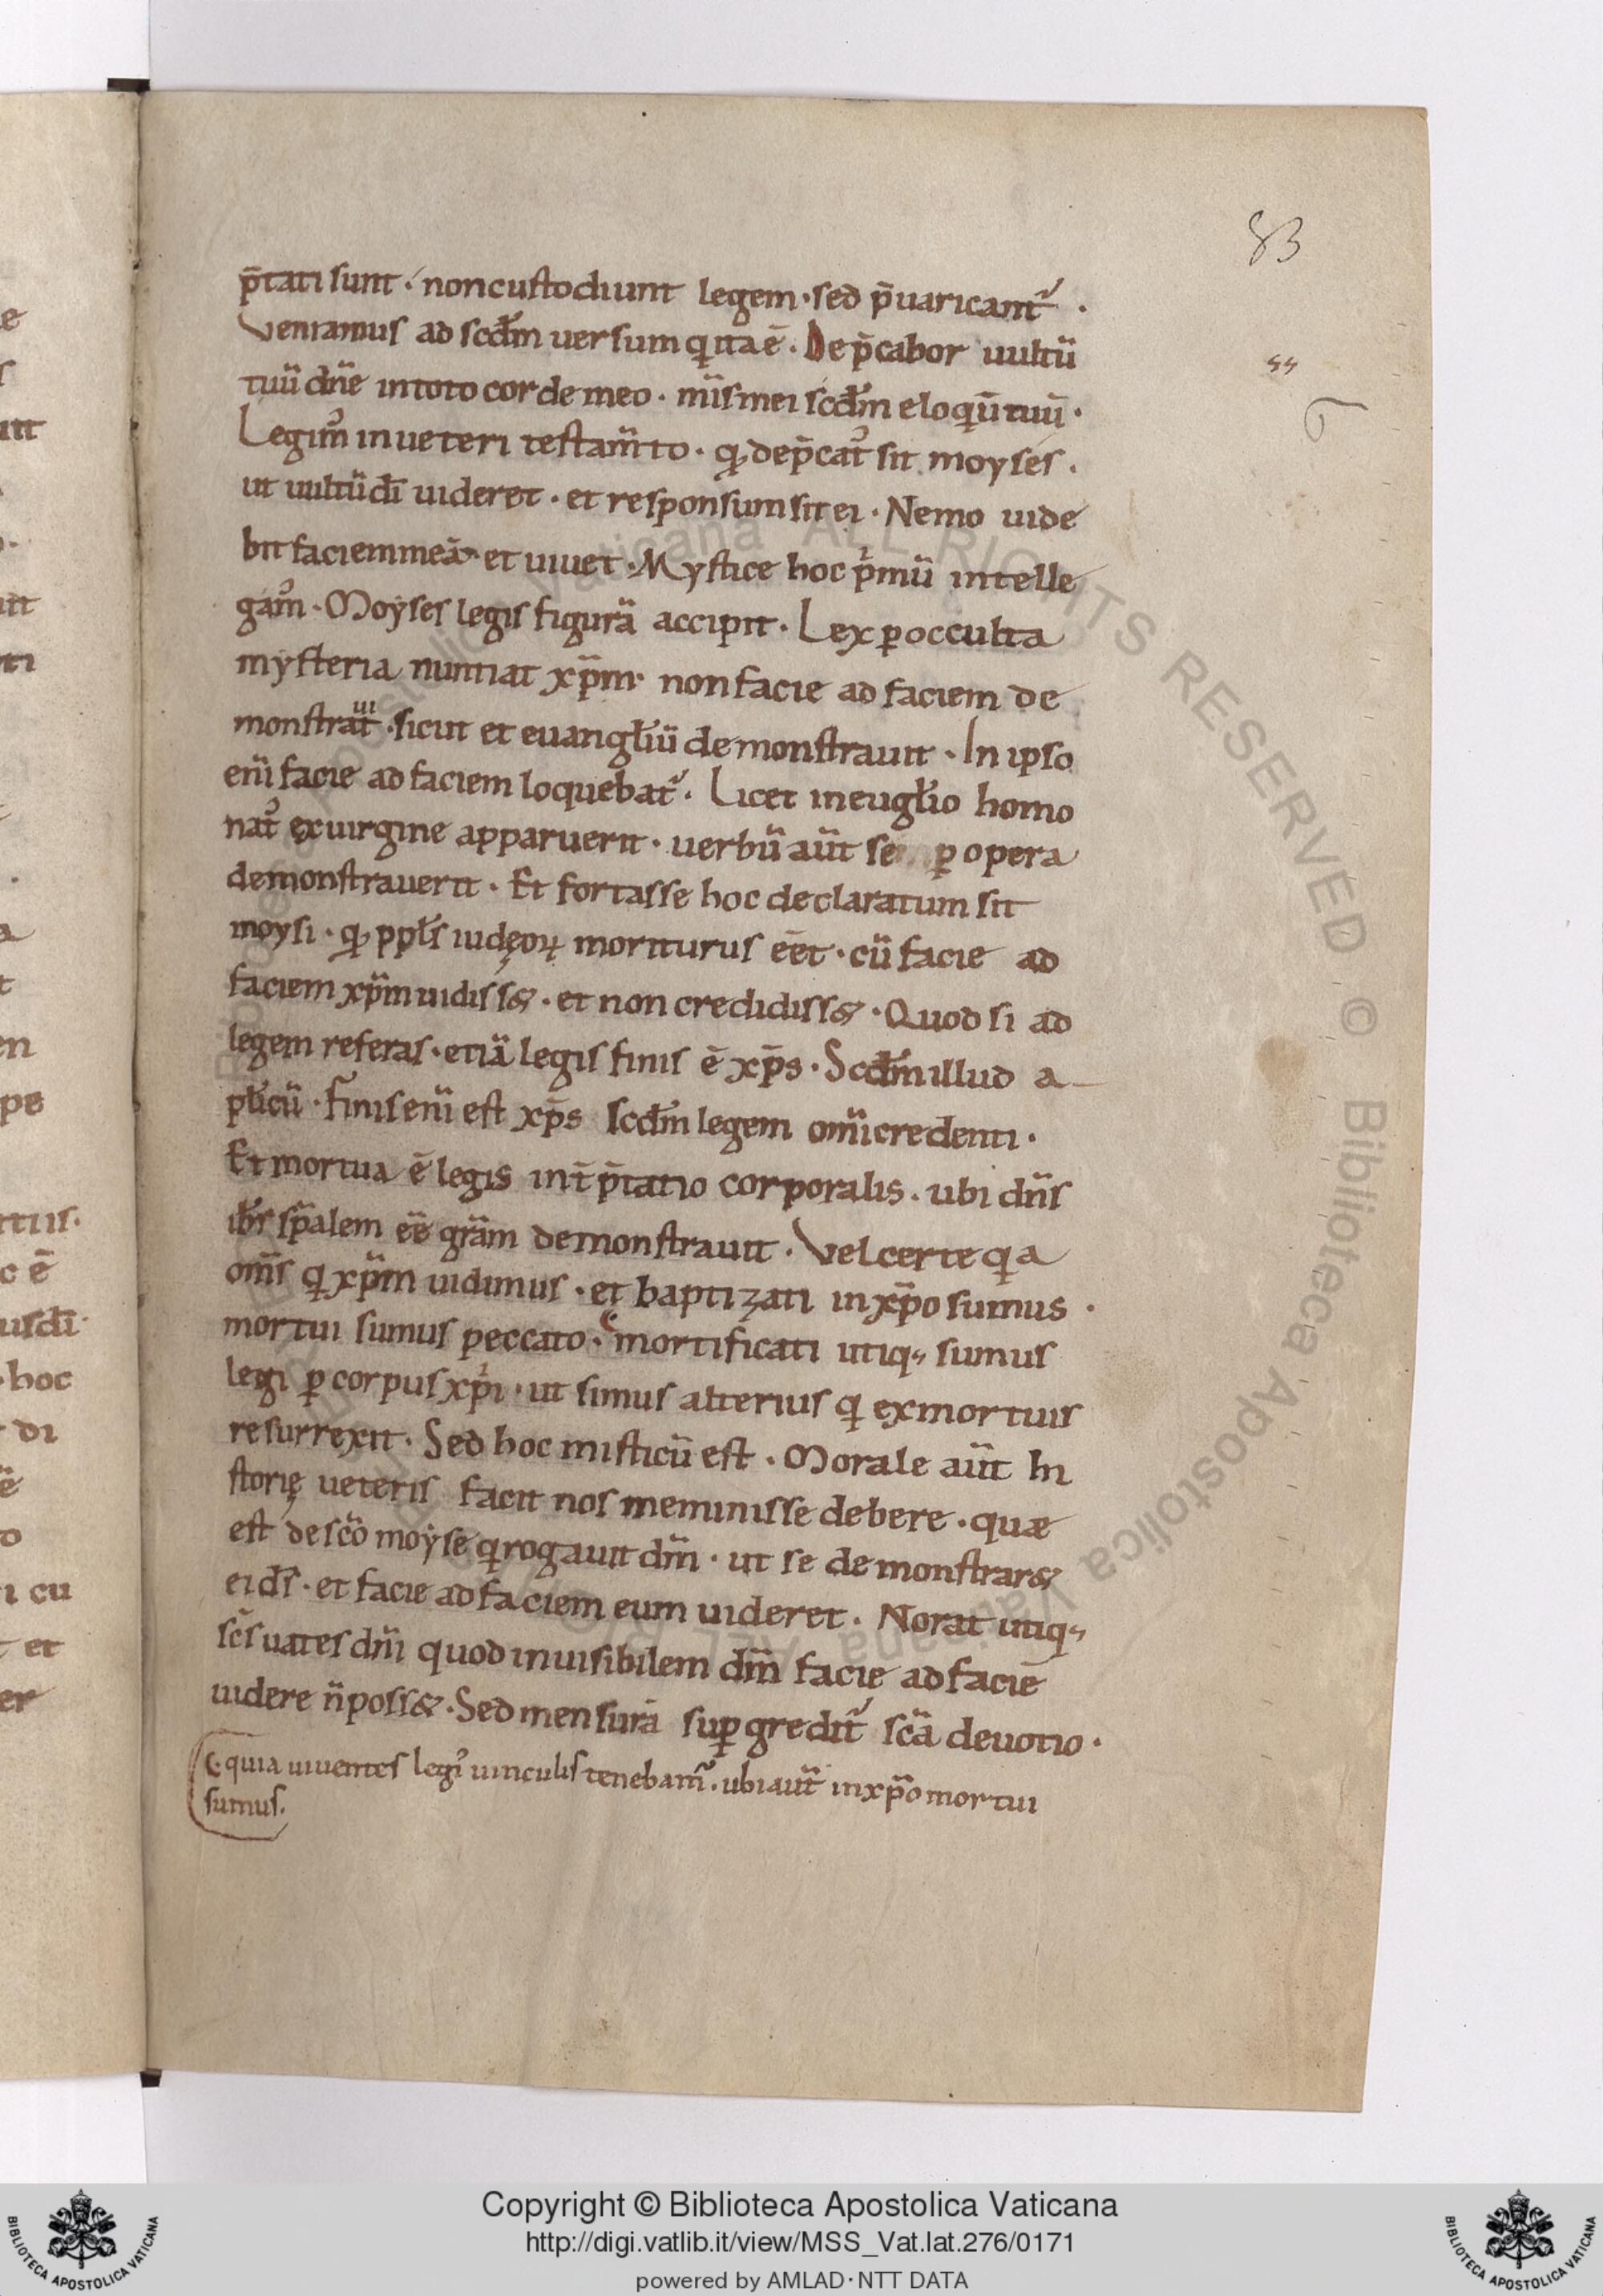 83
p̄tati sunt · non custodiunt legem · sed p̄uaricant᷑ ·
Veniamus ad scd̄m uersum q ita ē · Dep̄cabor uultū
tuū dn̄e in toto corde meo · mis̄ mei scd̄m eloqūi tuū ·
Legim᷒ in ueteri testam̄to · qd dep̄cat᷒ sit moyses ·
ut uultū dī uideret · et responsum sit ei · Nemo uide
bit faciem meā · et uiuet · Mystice hoc p̄mū intelle
gam᷒ · Moyses legis figurā accipit · Lex ꝑ occulta
mysteria nuntiat xp̄m · non facie ad faciem de
monstrat · sicut et euangl̄iū demonstrauit · In ipso
eni᷒ facie ad faciem loquebat᷑ · Licet in eugl̄io homo
nat᷒ ex uirgine apparuerit · uerbū aūt se ꝑ opera
demonstrauerit · Et fortasse hoc declaratum sit
moysi · qd ppl̄s iudęoꝝ moriturus eēt · cū facie ad
faciem xp̄m uidiss& · et non credidiss& · Quod si ad
legem referas · etiā legis finis ē xp̄s · Scd̄m illud a
pl̄icū · Finis enī est xp̄s scd̄m legem om̄i credenti ·
Et mortua ē legis int̄p̄tatio corporalis · ubi dn̄s
ih̄s sp̄alem eē gr̄am demonstrauit · Vel certe q a
om̄s q xp̄m uidimus · et baptizati in xp̄o sumus ·
mortui sumus peccato · mortificati utiq; sumus
legi ꝑ corpus xp̄i · ut simus alterius q ex mortuis
resurrexit · Sed hoc misticū est · Morale aūt hi
storię ueteris facit nos meminisse debere · quæ
est de sc̄o moyse q rogauit dm̄ · ut se demonstrar&
ei ds̄ · et facie ad faciem eum uideret · Norat utiq;
sc̄s uates dm̄i quod inuisibilem dm̄ facie ad faciē
uidere n̄ poss& · Sed mensurā suꝑgredit᷑ sc̄a deuotio ·
quia uiuentes legi᷒ uinculis tenebam᷑ · ubi aūt in xp̄o mortui
sumus.
Copyright © Biblioteca Apostolica Vaticana
http://digi.vatlib.it/view/MSS_Vat.lat.276/0171
powered by AMLAD·NTT DATA
BIBLIOTECA APOSTOLICA VATICANA
BIBLIOTECA APOSTOLICA VATICANA